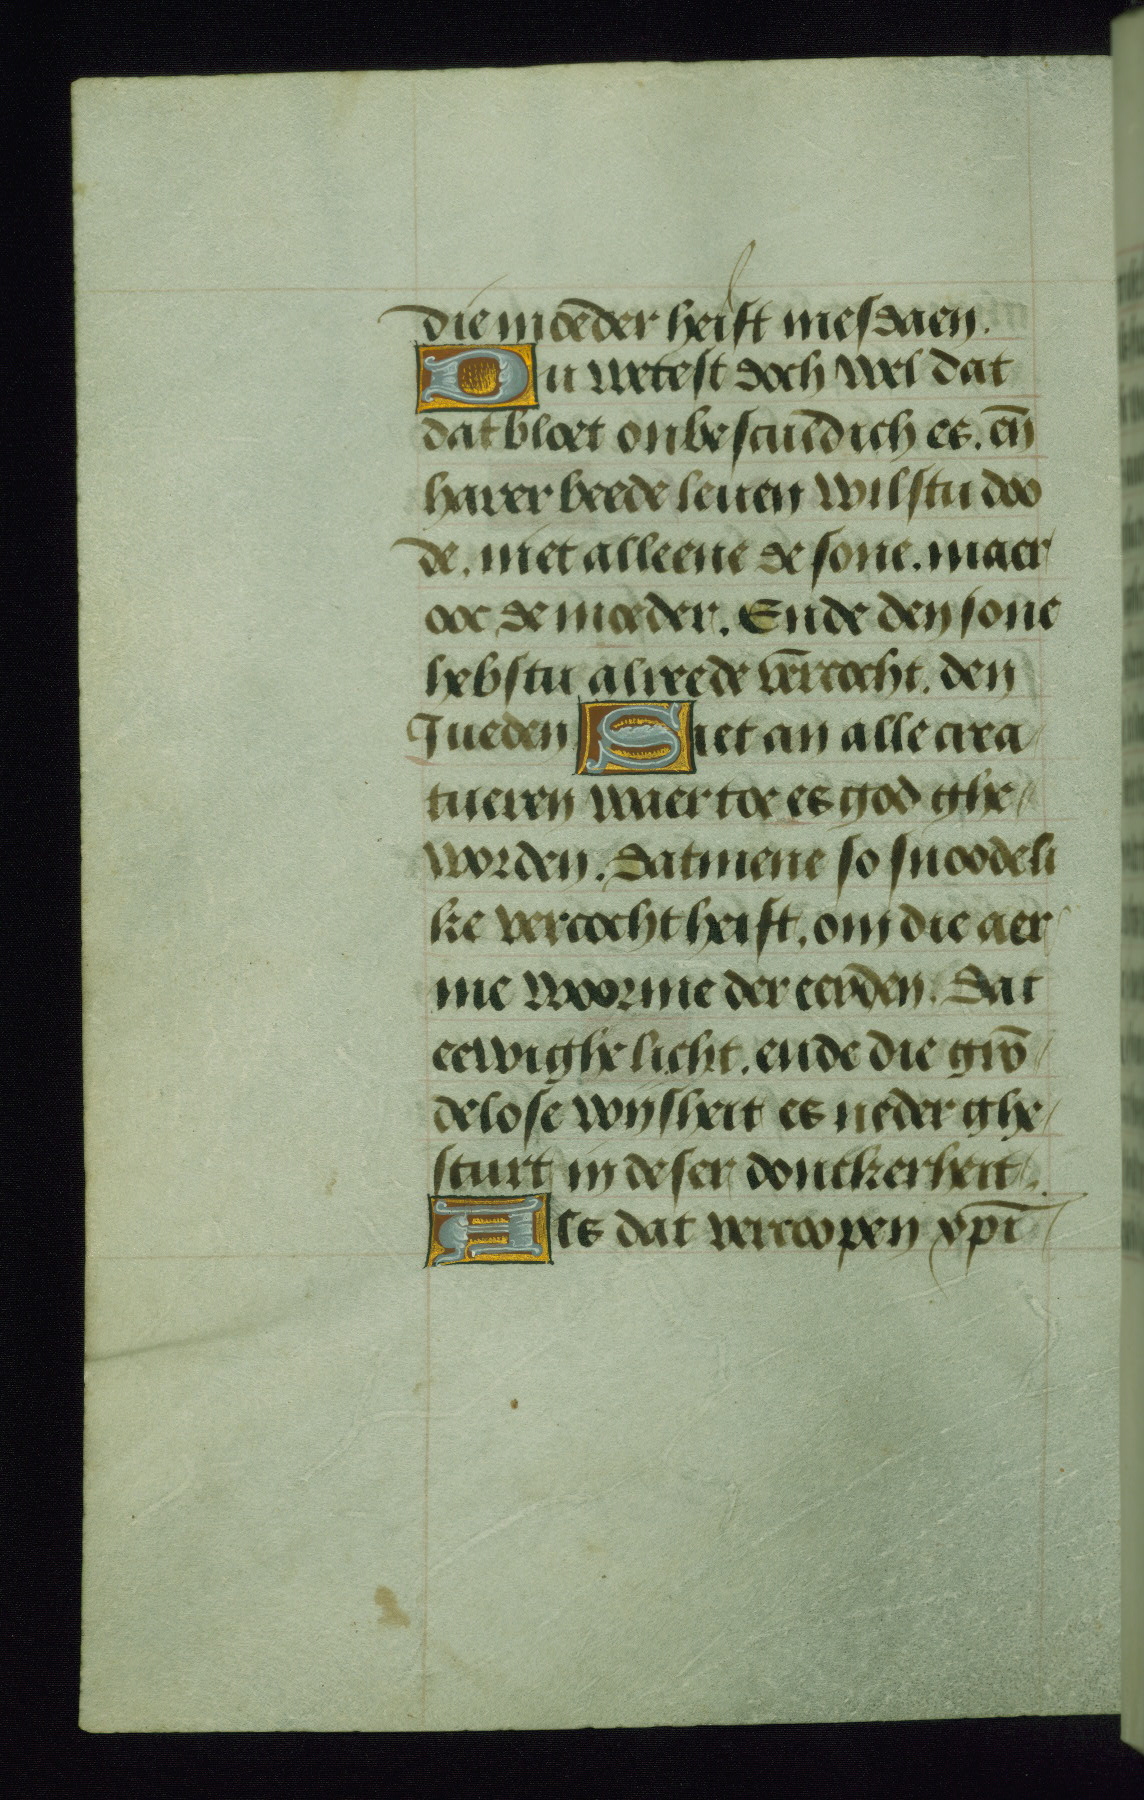 die moeder heift mesdaen.
Du wetest doch wel dat
dat bloet onbescūedich es. eñ
haer beede leuen wilstu doo
de. niet alleene de sone. maer
ooc de moeder. Ende den sone
hebstu alreede v̄ercocht. den
Jueden Siet an alle crea
tueren waer toe es god ghe
worden. datmene so snoodeli
ke vercocht heift. om die aer
me woorme der eerden. Dat
eewighe licht. ende die grō
delose wijsheit es neder ghe
sturt in deser donckerheit.
Als dat vercoopen xp̄i